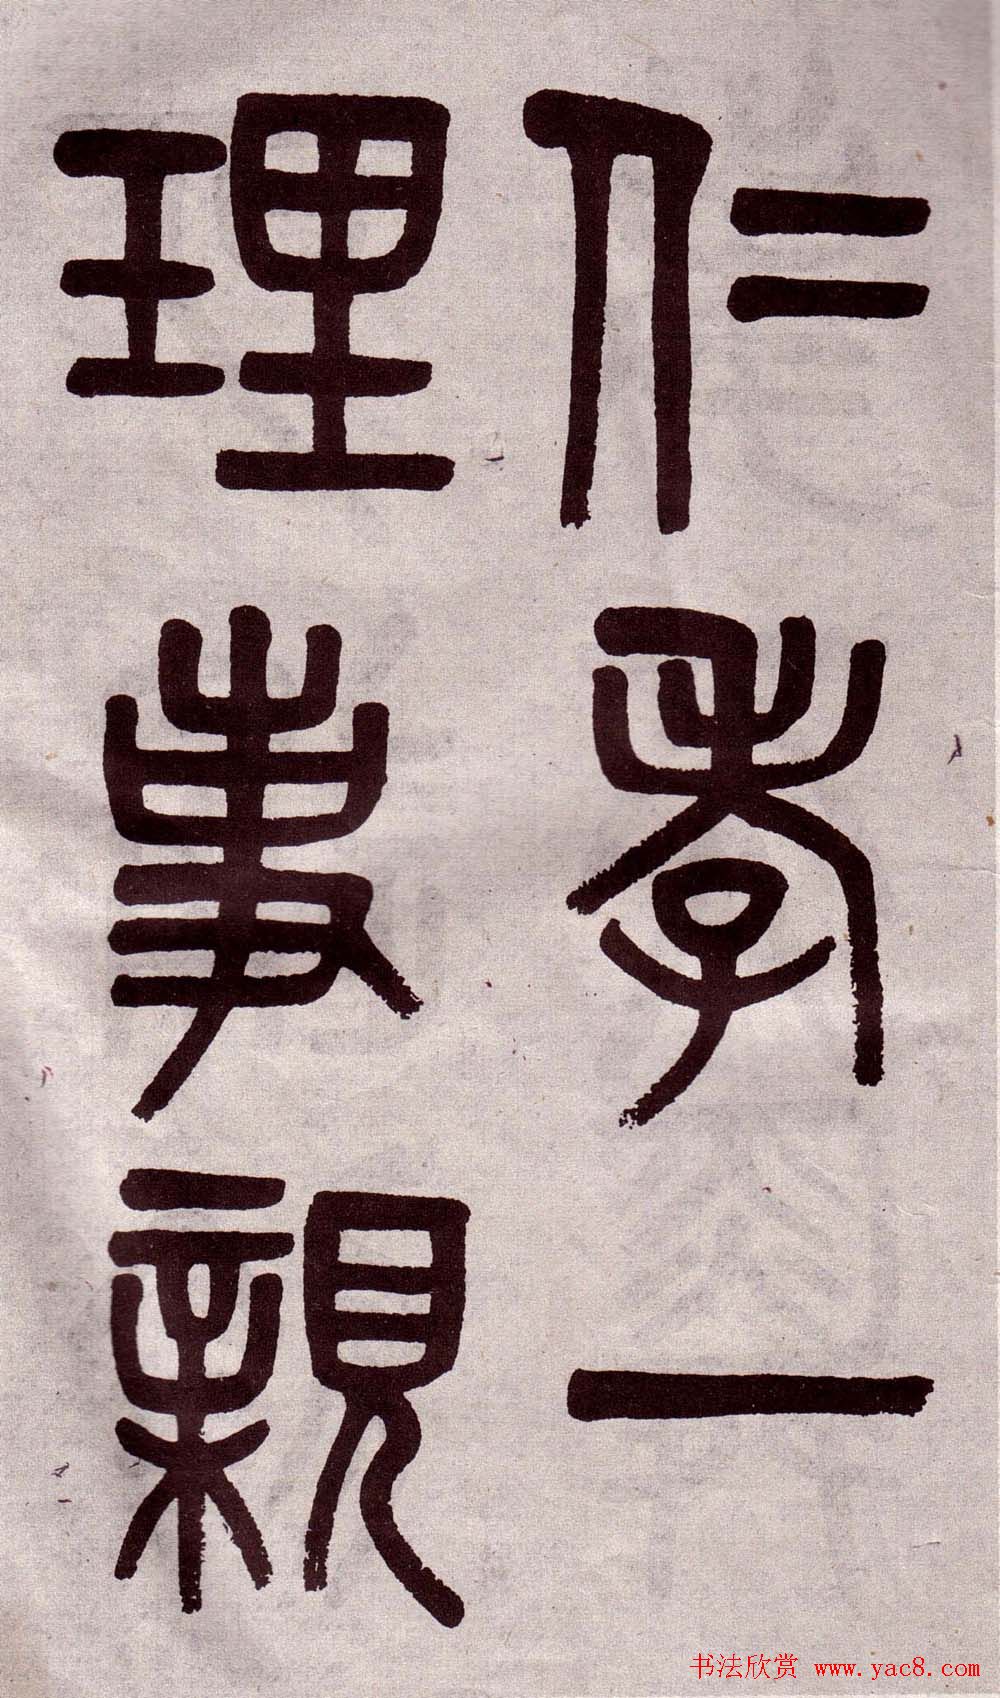 仁孝一
理事親
书法欣赏 www.yac8.com